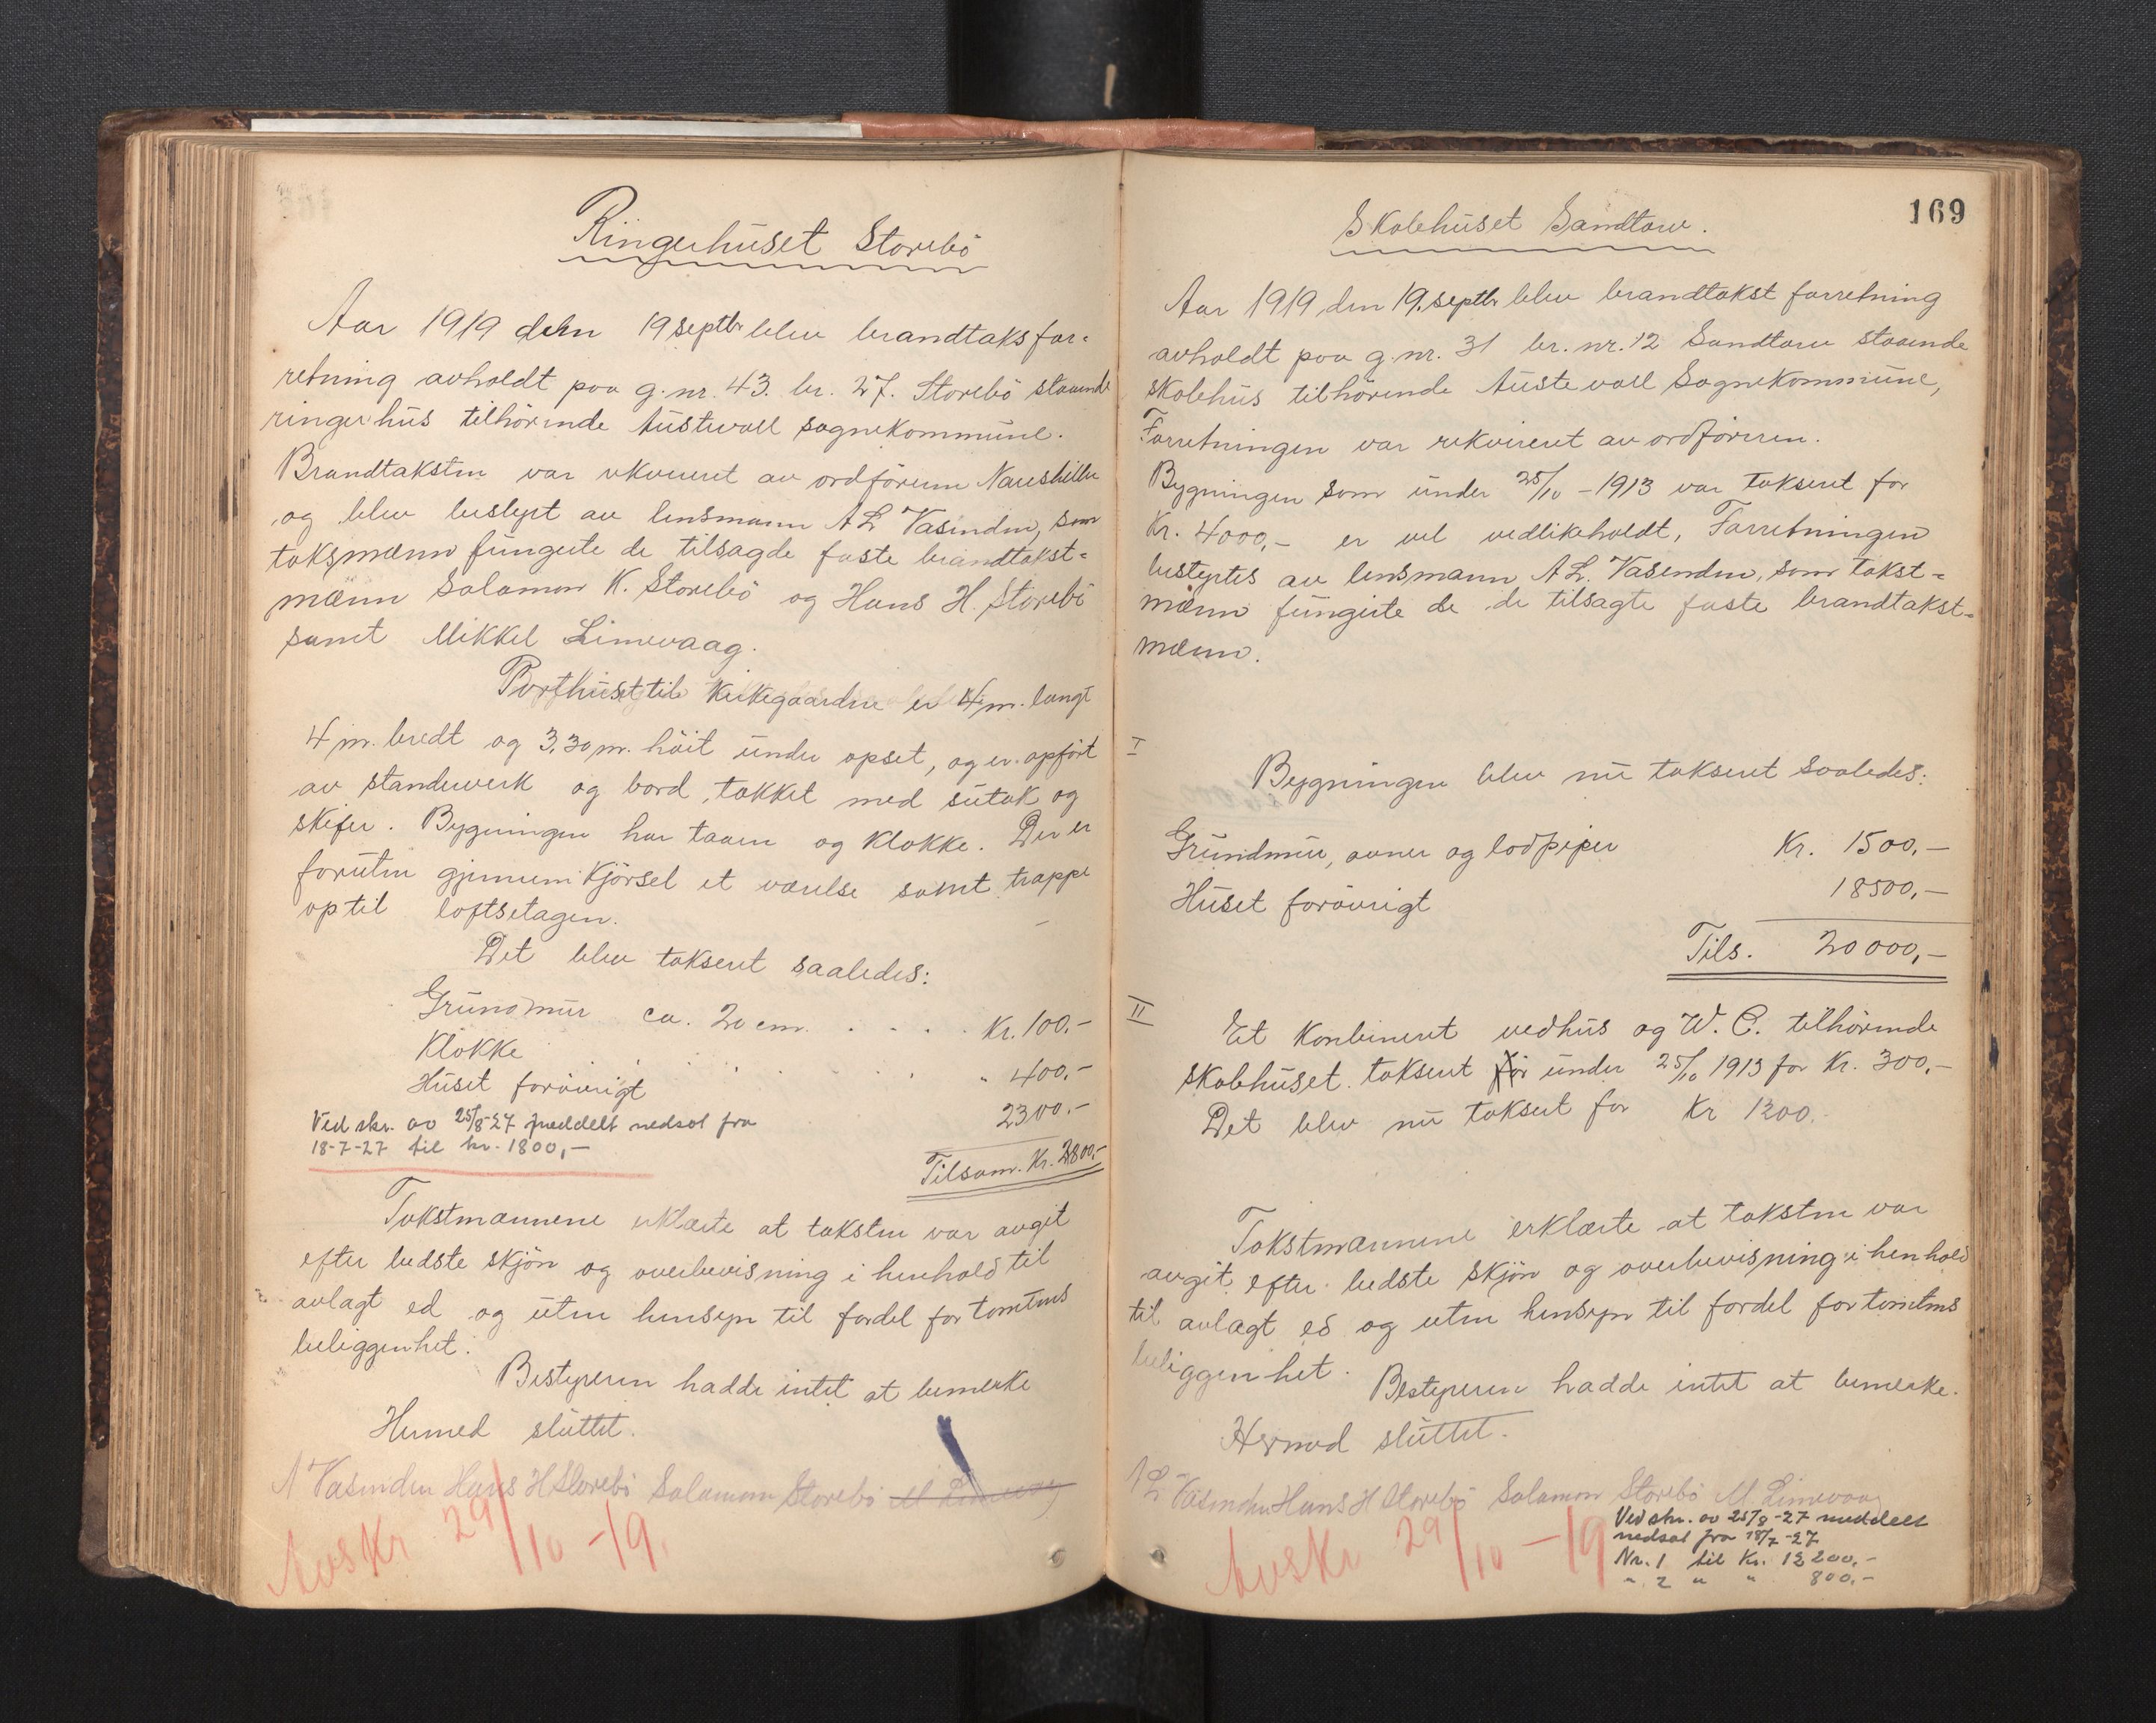 Ringerhuset Storebö
Aar 1919 den 19 septbr blev brandtaksfor-
retning avholdt paa g. nr. 43. br. 27. Storebö staaende
ringerhus tilhörende Austevoll sognekommune.
Brandtaksten var rekvireret av ordföreren Naushille
og blev bestyrt av lensmann A L Vasinden, som
taksmænn fungerte de tilsagde faste brandtakst-
mænn Salamon K. Storebö og Hans H. Storebö
samt Mikkel Limevaag.
Porthuset til Kirkegaarden er 4 m. langt
4 m. bredt og 3,30 m. höit under opset, og er opfört
av standerverk og bord, takket med sutak og
skifer. Bygningen har taarn og Klokke. Der er
foruten gjennemkjörsel et værelse samt trappe
op til loftsetagen.
Det blev taksert saaledes:
Grundmur ca. 20 cm. . . . . Kr. 100.-
Klokke . . . . . " 400.-
Huset forövrigt 2300.-
Ved skr. av 25/8-27 meddelt nedsat fra
18-7-27 til kr. 1800,-
Tilsam. Kr. 2800,-
Takstmænnene erklærte at taksten var avgit
efter bedste skjön og overbevisning i henhold til
avlagt ed og uten hensyn til fordel for tomtens
beliggenhet.
Bestyreren hadde intet at bemerke
Hermed sluttet.
A Vasinden Hans H Storebö Salamon Storebö M Limevaag
Avskr 29/10 -19.
169
Skolehuset Sandtorv.
Aar 1919 den 19. septbr blev brandtakst forretning
avholdt paa g. nr. 31 br. nr. 12 Sandtorv staaende
skolehus tilhörende Austevoll Sognekommune,
Forretningen var rekvireret av ordföreren.
Bygningen som under 25/10 - 1913 var taksert for
Kr. 4000,- er vel vedlikeholdt, Forretningen
bestyrtes av lensmann A L. Vasenden, som takst-
mænn fungerte de de tilsagte faste brandtakst-
mænn.
I
Bygningen blev nu taksert saaledes:
Grundmur, ovner og lodpiper Kr. 1500,-
Huset forövrigt 18500,-
Tils. 20000,-
II
Et Konbineret vedhus og W. C. tilhörende
skolehuset taksert for under 25/10 1913 for Kr. 300,-
Det blev nu taksert for Kr 1200.
Takstmænnene erklærte at taksten var
avgit efter bedste skjön og overbevisning i henhold
til avlagt ed og uten hensyn til fordel for tomtens
beliggenhet.
Bestyreren hadde intet at bemerke.
Hermed sluttet.
A L Vasinden Hans H Storebö Salamon Storebö M. Limevaag
Ved skr. av 25/8-27 meddelt
nedsat fra 18/7-27
Nr. 1 til Kr. 12200,-
" 2 " " 800,-
Avskr 29/10 -19